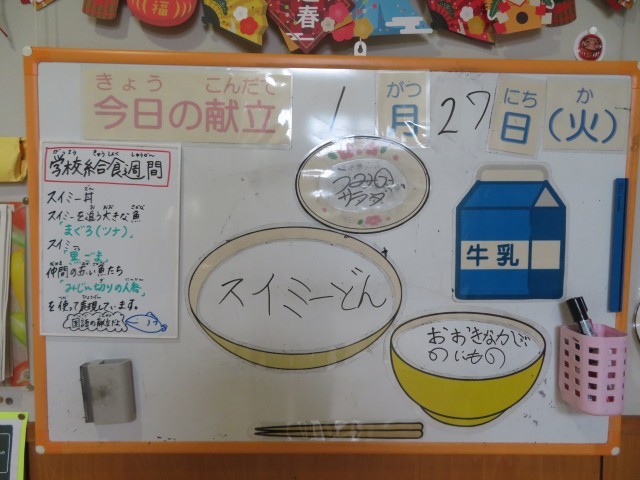 福
迎春
きょう こんだて
今日の献立
1
がつ
月
27
にち
日
か
(火)
がっこう きゅうしょく しゅうかん
学校給食週間
スイミー丼
スイミーを追う大きな魚
「まぐろ(ツナ)」
スイミー
「黒ごま」
仲間の赤い魚たち
「みじん切りの人参」
を使って表現しています。
国語の献立だよ
サラダ
スイミーどん
牛乳
おおきなかぶ
のにもの